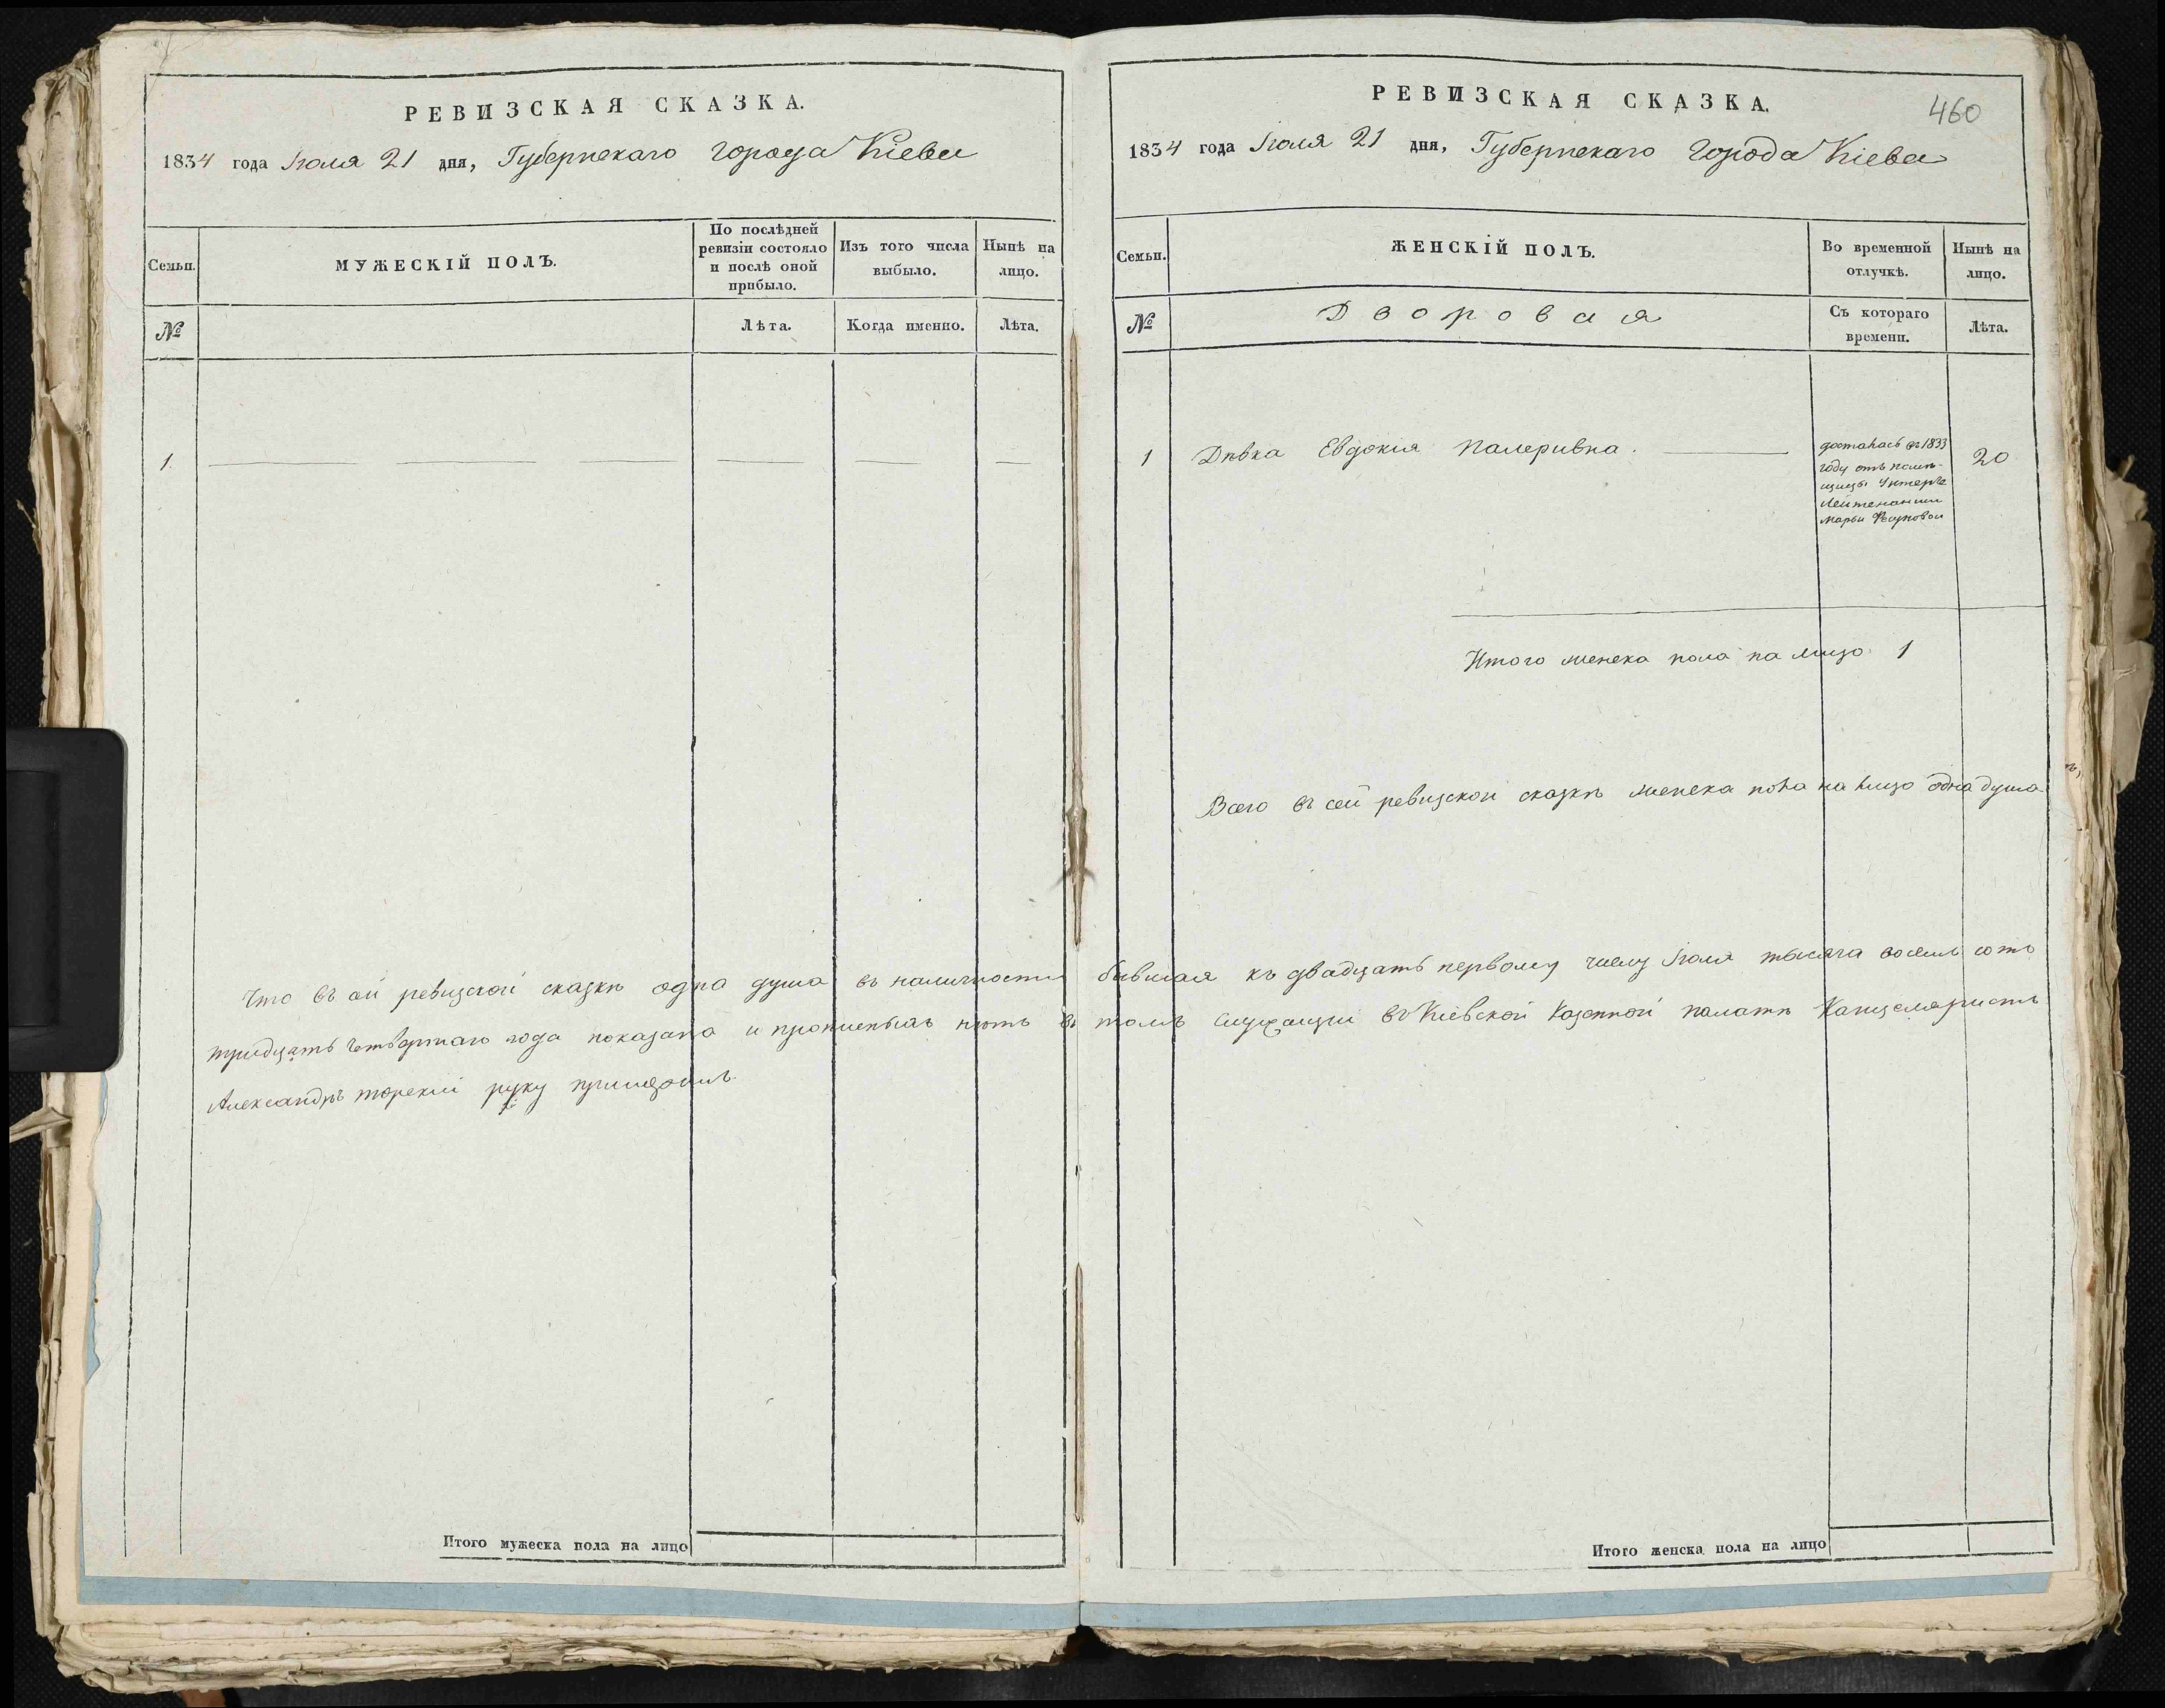 РЕВИЗСКАЯ СКАЗКА.
1834 года Іюля 21 дня, Губернскаго города Кіева
Семьи.
МУЖЕСКІЙ ПОЛЪ.
По послѣдней ревизіи состояло и послѣ оной прибыло.
Изъ того числа выбыло.
Нынѣ на лицо.
№
Лѣта.
Когда именно.
Лѣта.
1.
Что въ сей ревизской сказкѣ одна душа въ наличности бывшая къ двадцать первому числу Іюля тысяча восемь сотъ
тридцать четвертаго года показана и прописныхъ нѣтъ въ томъ служащій въ Кіевской Казенной палатѣ Канцеляристъ
Александръ руку приложилъ
Итого мужеска пола на лицо
РЕВИЗСКАЯ СКАЗКА.
460
1834 года Іюля 21 дня, Губернскаго Города Кіева
Семьи.
ЖЕНСКІЙ ПОЛЪ.
Во временной отлучкѣ.
Нынѣ на лицо.
№
Дворовая
Съ котораго времени.
Лѣта.
1
Дѣвка Евдокія Палеривна.
досталась въ 1833
году отъ помѣ-
щицы Унтеръ
Лейтенантши
Марьи
20
Итого женска пола на лицо 1
Всего въ сей ревизской сказкѣ женска пола на лицо одна душа
Итого женска пола на лицо